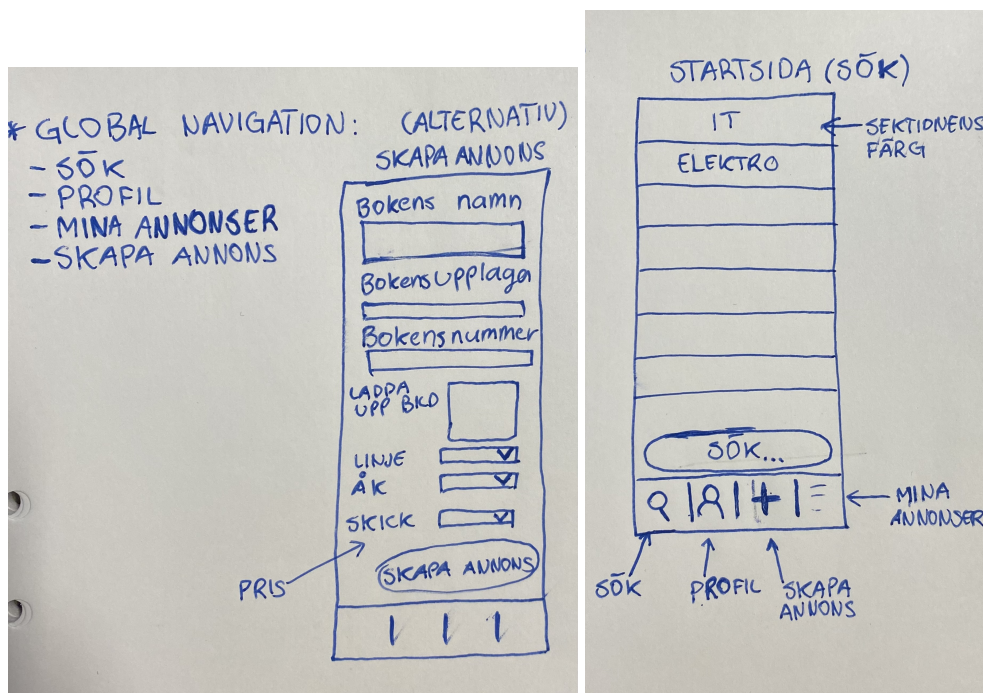 * GLOBAL NAVIGATION:
- SÖK
- PROFIL
- MINA ANNONSER
- SKAPA ANNONS
(ALTERNATIV)
SKAPA ANNONS
Bokens namn
Bokens upplaga
Bokens nummer
LADDA
UPP BILD
LINJE
ÅK
SKICK
PRIS
SKAPA ANNONS
STARTSIDA (SÖK)
IT
SEKTIONENS
FÄRG
ELEKTRO
SÖK...
MINA
ANNONSER
SÖK
PROFIL
SKAPA
ANNONS